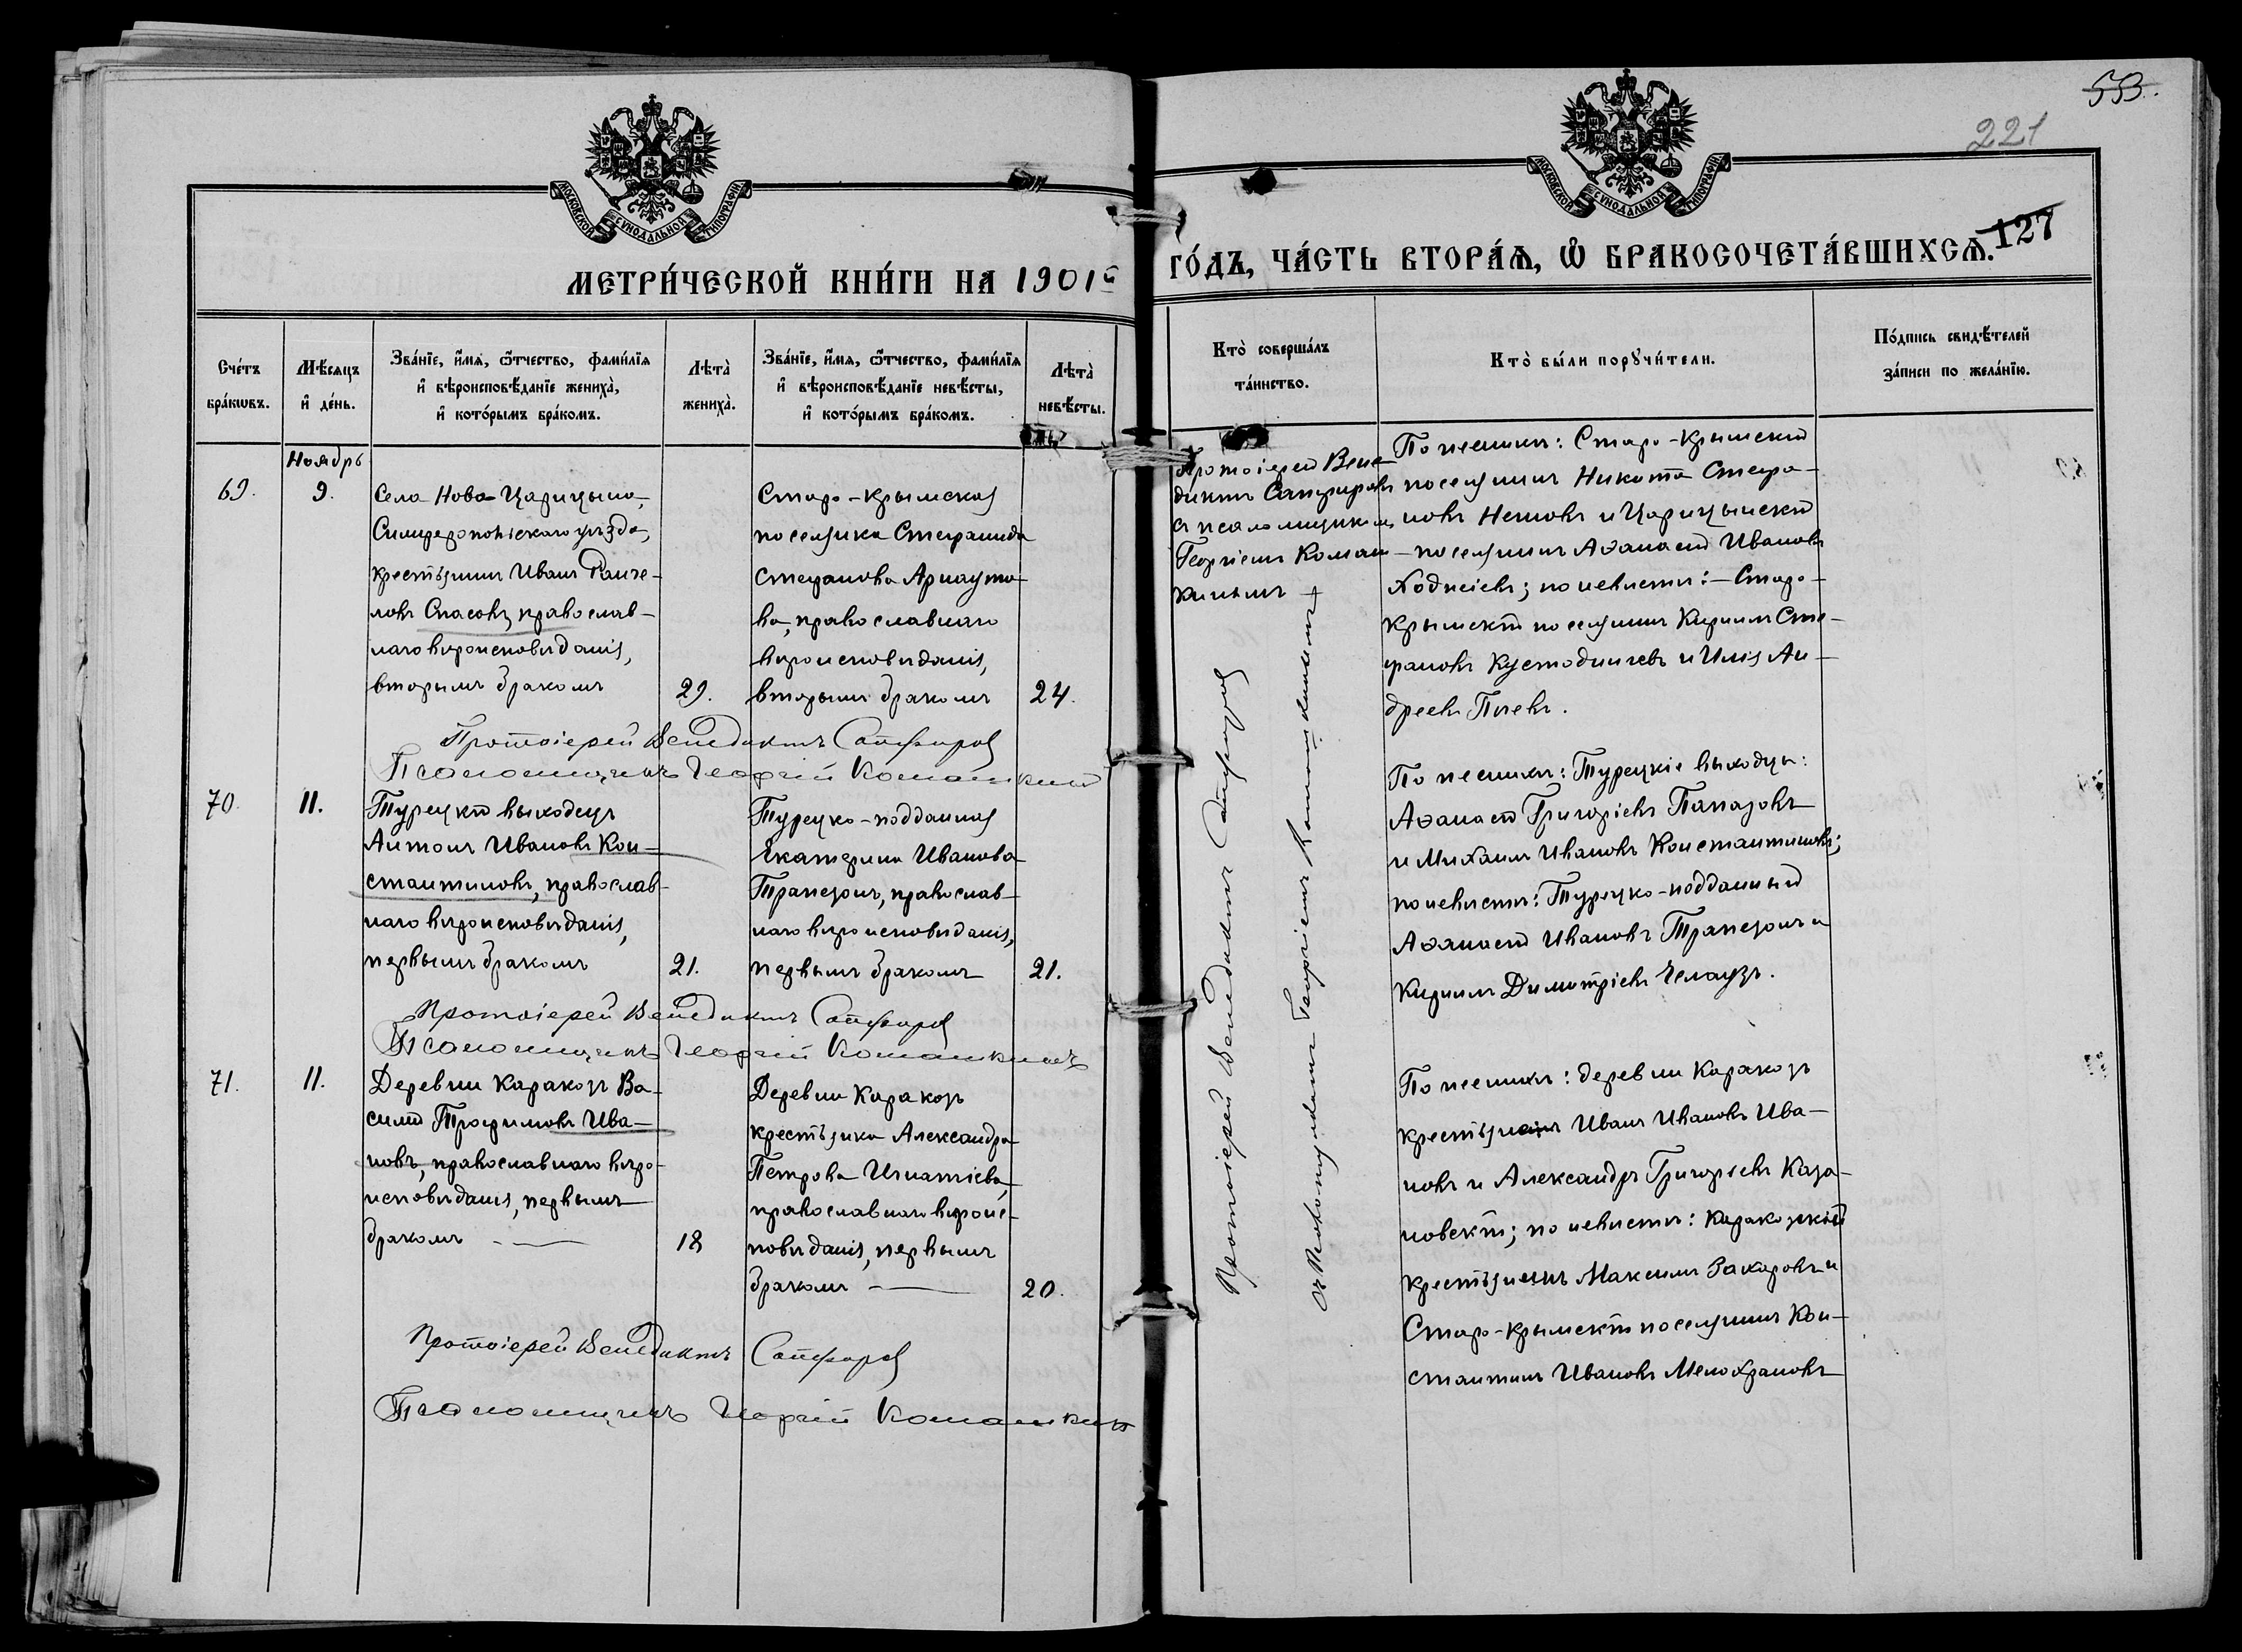 553.
221
127
МОСКОВСКОЙ СѴНОДАЛЬНОЙ ТИПОГРАФІИ
МОСКОВСКОЙ СѴНОДАЛЬНОЙ ТИПОГРАФІИ
МЕТРИ́ЧЕСКОЙ КНИ́ГИ НА 1901й
ГО́ДЪ, ЧА́СТЬ ВТОРА́Ѧ, Ѽ БРАКОСОЧЕТА́ВШИХСѦ.
Сче́тъ
бра́кѡвъ.
Мѣ́сяцъ
и҆ де́нь.
Зва́нїе, и҆́мѧ, ѻ҆́тчество, фами́лїѧ
и҆ вѣроисповѣ́данїе жениха̀,
и҆ кото́рымъ бра́комъ.
Лѣта̀
жениха̀.
Зва́нїе, и҆́мѧ, ѻ҆́тчество, фами́лїѧ
и҆ вѣроисповѣ́данїе невѣ́сты,
и҆ кото́рымъ бра́комъ.
Лѣта̀
невѣ́сты.
Кто̀ соверша́лъ
та́инство.
Кто̀ бы́ли порꙋчи́тели.
По́дпись свидѣ́телей
за́писи по жела́нїю.
Ноябрь
69.
9.
Села Ново-Царицыно,
Симферопольскаго уѣзда,
крестьянинъ Иванъ
Спасовъ, православ-
наго вѣроисповѣданія,
вторымъ бракомъ
29.
Старо-Крымская
поселянка Стефанида
Стефанова Арнауто-
ва, православнаго
вѣроисповѣданія,
вторымъ бракомъ
24.
Протоіерей Вене-
диктъ Сапфировъ
съ псаломщикомъ
Георгіемъ Комаш-
кинымъ
По женихѣ: Старо-Крымскій
поселянинъ Никита Стефа-
новъ и Царицынскій
поселянинъ Аѳанасій Ивановъ
; по невѣстѣ:- Старо-
Крымскій поселянинъ Кириллъ Сте-
фановъ Кустодинчевъ и Илія Ан-
дреевъ
Протоіерей Венедиктъ Сапфировъ
Псаломщикъ Георгій Комашкинъ
70.
11.
Турецкій выходецъ
Антонъ Ивановъ Кон-
стантиновъ, православ-
наго вѣроисповѣданія,
первымъ бракомъ
21.
Турецко-подданная
Екатерина Иванова
Трапезонъ, православ-
наго вѣроисповѣданія,
первымъ бракомъ
21.
По женихѣ: Турецкіе выходцы:
Аѳанасій Григорьевъ Папазовъ
и Михаилъ Ивановъ Константиновъ;
по невѣстѣ: Турецко-подданный
Аѳанасій Ивановъ Трапезонъ и
Кириллъ Димитріевъ Челаузъ.
Протоіерей Венедиктъ Сапфировъ
Псаломщикъ Георгій Комашкинъ
71.
11.
Деревни Каракозъ Ва-
силій Трофимовъ Ива-
новъ, православнаго вѣро-
исповѣданія, первымъ
бракомъ
18
Деревни Каракозъ
крестьянка Александра
Петрова Игнатіева,
православнаго вѣроис-
повѣданія, первымъ
бракомъ
20.
По женихѣ: деревни Каракозъ
крестьянинъ Иванъ Ивановъ Ива-
новъ и Александръ Григорьевъ Каза-
новскій; по невѣстѣ: Каракозскій
крестьянинъ Максимъ Захаровъ и
Старо-Крымскій поселянинъ Кон-
стантинъ Ивановъ
Протоіерей Венедиктъ Сапфировъ
Псаломщикъ Георгій Комашкинъ
Протоіерей Венедиктъ Сапфировъ
съ псаломщикомъ Георгіемъ Комашкинымъ